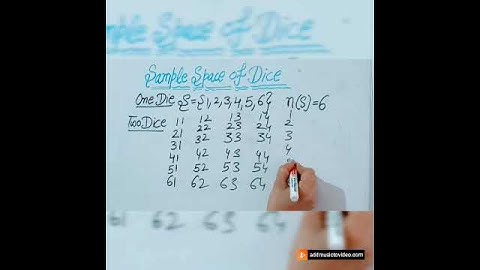 mple Space of Dice
Sample Space of Dice
One Die S={1,2,3,4,5,6} n(S)=6
Two Dice 11 12 13 14 1
21 22 23 24 2
31 32 33 34 3
41 42 43 44 4
51 52 53 54
61 62 63 64
61 62 63 64
addmusictovideo.com